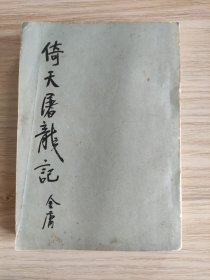 倚天屠龍記
金庸